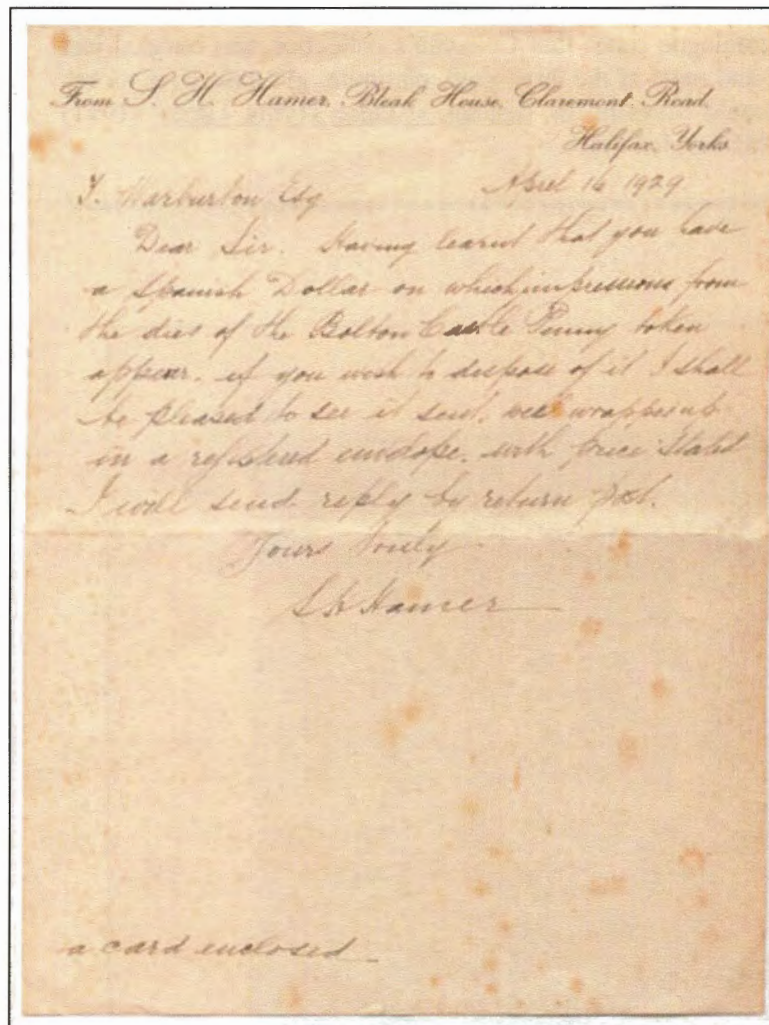 From S. H. Hamer, Bleak House, Claremont Road,
Halifax, Yorks
April 16 1929
T. Warburton Esq
Dear Sir. Having learnt that you have
a Spanish Dollar on which impressions from
the dies of the Bolton Castle Penny token
appear. if you wish to dispose of it I shall
be pleased to see it sent, well wrapped up
in a registered envelope, with price stated
I will send reply by return post.
Yours truly
S H Hamer
a card enclosed